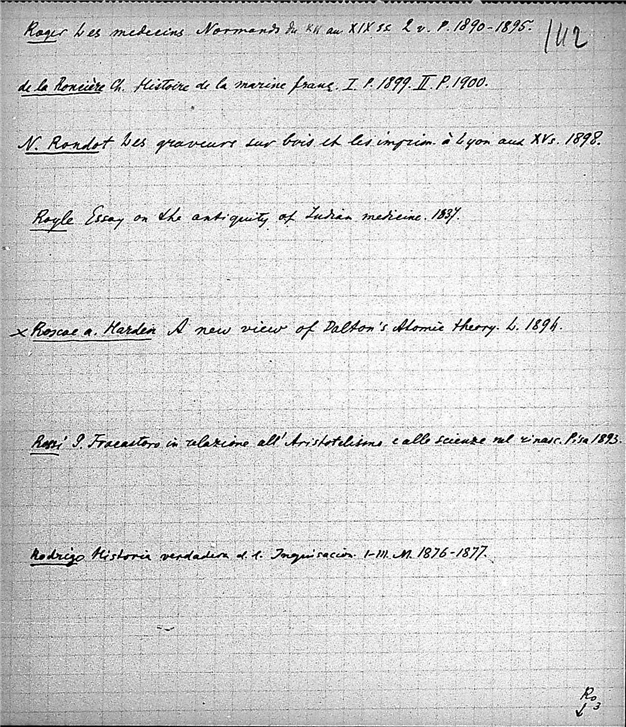 Roger Les medecins Normands du XII au XIX ss. 2 v. P. 1890-1895.
142
de la Roncière Ch. Histoire de la marine franç. I. P. 1899. II. P. 1900.
N. Rondot Les graveurs sur bois et les imprim. à Lyon aux XV s. 1898.
Royle Essay on the antiquity of Indian medicine. 1837.
x Roscoe a. Harden A new view of Dalton's Atomic theory. L. 1894.
Rossi G. Fracastoro in relazione all' Aristotelismo e alle scienze nel rinasc. Pisa 1893.
Rodrigo Historia verdadera d. l. Inquisacion I-III. M. 1876-1877.
Ro 3